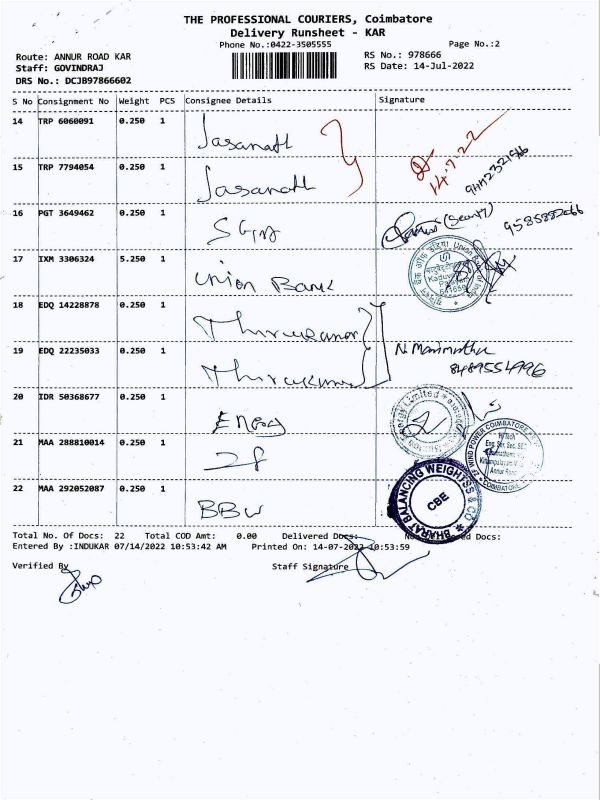 THE PROFESSIONAL COURIERS, Coimbatore
Delivery Runsheet - KAR
Phone No.:0422-3505555
Page No.:2
Route: ANNUR ROAD KAR
RS No.: 978666
Staff: GOVINDRAJ
RS Date: 14-Jul-2022
DRS No.: DCJB97866602
S No Consignment No Weight PCS Consignee Details Signature
14 TRP 6060091 0.250 1 Jasanath
14.7.22
15 TRP 7794054 0.250 1 Jasanath
16 PGT 3649462 0.250 1 (Security) 9585882066
17 IXM 3306324 5.250 1 Union Bank
18 EDQ 14228878 0.250 1
19 EDQ 22235033 0.250 1 N. Marimuthu
8489554996
20 IDR 50368677 0.250 1
21 MAA 288810014 0.250 1
22 MAA 292052087 0.250 1 BBW
BHARAT BALANCING WEIGHTSS & CO
CBE
Total No. Of Docs: 22 Total COD Amt: 0.00 Delivered Docs: Docs:
Entered By :INDUKAR 07/14/2022 10:53:42 AM Printed On: 14-07-2022 10:53:59
Verified By Staff Signature